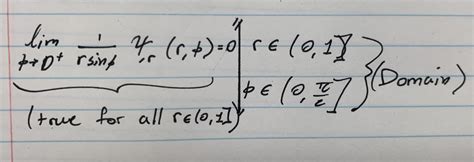 lim ϕ→0⁺ 1/(r sinϕ) Ψ,r (r, ϕ) = 0 | r ∈ (0, 1]
ϕ ∈ (0, π/2] } (Domain)
(true for all r∈(0,1])